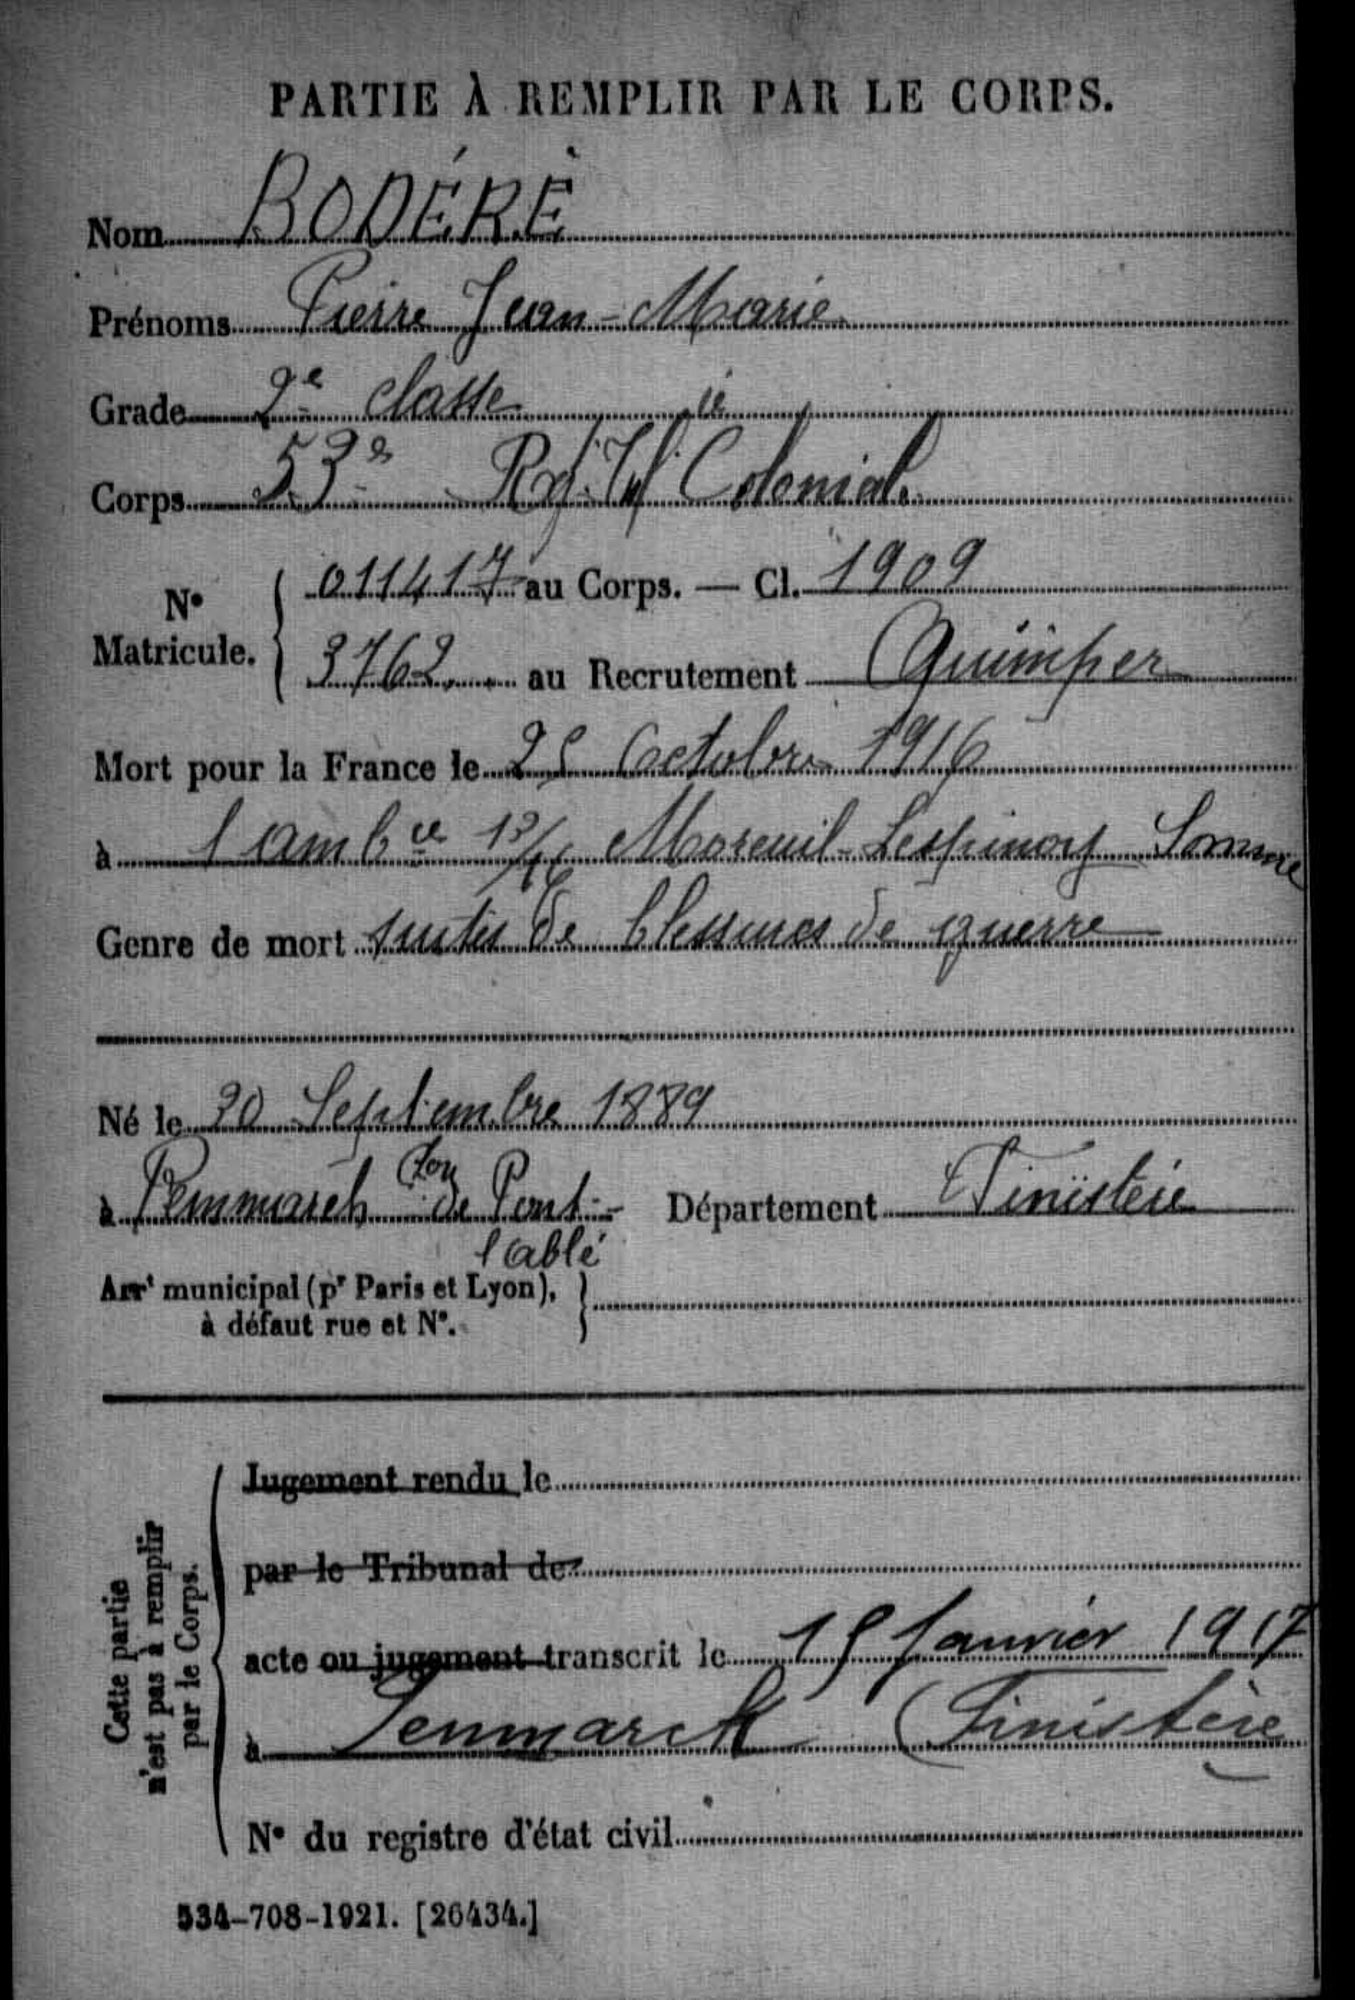 PARTIE À REMPLIR PAR LE CORPS.
Nom BODÉRÉ
Prénoms Pierre Jean-Marie
Grade 2e classe
Corps 53e Rgt Inf Colonial
No Matricule. 011417 au Corps. — Cl. 1909
3762 au Recrutement Quimper
Mort pour la France le 25 Octobre 1916
à l'ambce 13/16 Moreuil-Lespinoy Somme
Genre de mort suites de blessures de guerre
Né le 30 Septembre 1889
à Penmarch Con de Pont- Département Finistère
l'abbé
Arrt municipal (pr Paris et Lyon),
à défaut rue et No.
Cette partie
n'est pas à remplir
par le Corps.
Jugement rendu le
par le Tribunal de
acte ou jugement transcrit le 15 Janvier 1917
à Penmarch (Finistère
No du registre d'état civil
534-708-1921. [26434.]